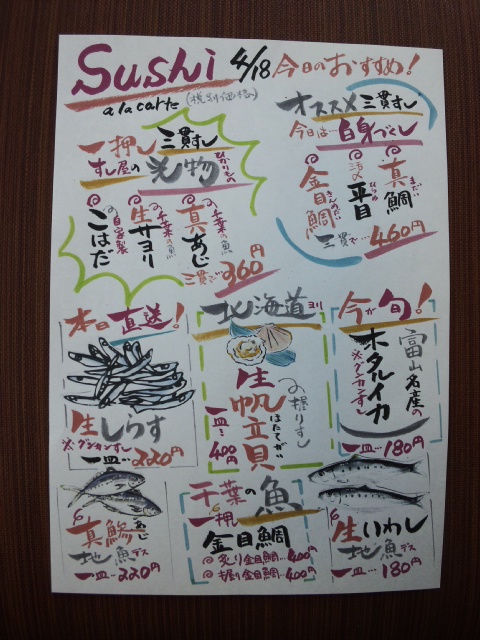 Sushi 4/18 今日のおすすめ!
a la carte (税別価格)
一押し三貫すし
すし屋の光物
ひかりもの
千葉の魚
真あじ
千葉の魚
生サヨリ
の自家製
こはだ
三貫で 360円
オススメ三貫すし
今日は… 白身づくし
真鯛
まだい
平目
ひらめ
金目鯛
きんめだい
三貫で… 460円
本日直送!
生しらす
※グンカンすし
一皿… 220円
北海道ヨリ
生帆立貝
ほたてがい
の握りすし
一皿… 400円
今が旬!
富山名産の
ホタルイカ
※グンカンすし
一皿… 180円
真鯵
あじ
地魚デス
一皿… 220円
千葉の魚
一押
金目鯛
炙り金目鯛… 400円
握り金目鯛… 400円
生いわし
地魚デス
一皿… 180円